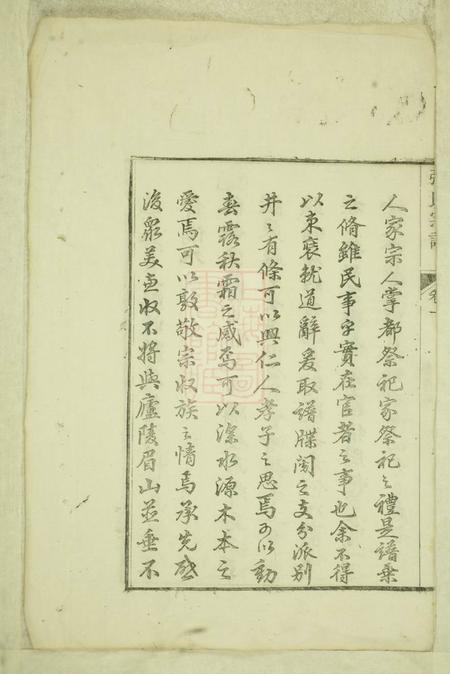 張氏宗譜
卷一
人家宗人掌都祭祀家祭祀之禮是譜乘
之脩雖民事乎實在官者之事也余不得
以束裝就道辭爰取譜牒閱之支分派別
井々有條可以興仁人孝子之思焉可以動
春露秋霜之感焉可以深水源木本之
愛焉可以敦敬宗收族之情焉承先啟
後眾美畫收不將與廬陵眉山並垂不